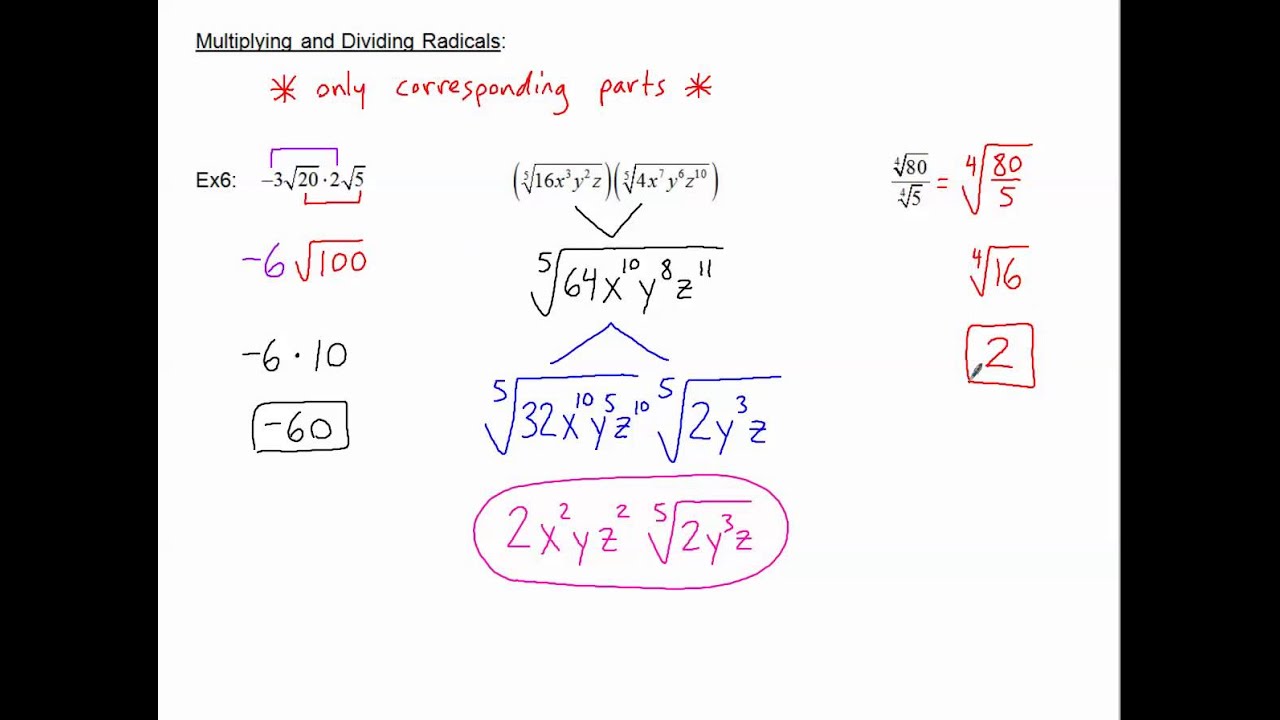 Multiplying and Dividing Radicals:
* only corresponding parts *
Ex6: −3√20 · 2√5
−6 √100
−6 · 10
−60
(⁵√16x³y²z)(⁵√4x⁷y⁶z¹⁰)
⁵√64x¹⁰y⁸z¹¹
⁵√32x¹⁰y⁵z¹⁰ ⁵√2y³z
2x²yz² ⁵√2y³z
⁴√80/⁴√5 = ⁴√80/5
⁴√16
2